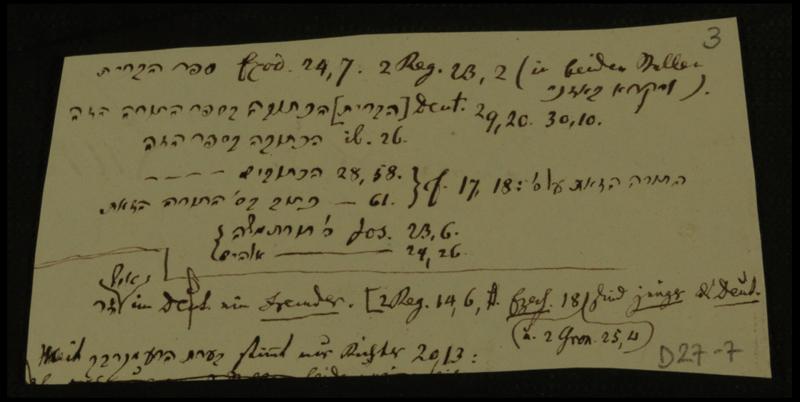 3
ספר הברית Exod. 24,7. 2 Reg. 23,2 (in beiden Stellen
ויקרא באזני).
[הברית] הכתובה בספר התורה הזה Deut. 29,20. 30,10.
הכתובה בספר הזה ib. 26.
הכתובים 28,58.
כתוב בס' התורה הזאת — 61. } cf. 17,18: התורה הזאת על ס'
ס' תורת משה Jos. 23,6.
אלהים 24,26.
im Deut. nie Fremder. [2 Reg. 14,6, Ezech. 18 sind jünger als Deut.
(u. 2 Chron. 25,4)
Mit stimmt nur Richter 20,13:
D27-7